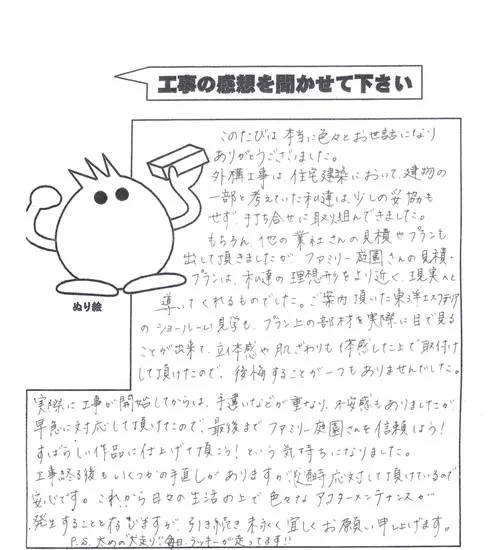 工事の感想を聞かせて下さい
このたびは本当に色々とお世話になり
ありがとうございました。
外構工事は、住宅建築において、建物の
一部と考えていた私達は、少しの妥協も
せず、打ち合せに取り組んできました。
もちろん、他の業社さんの見積やプランも
出して頂きましたが、ファミリー庭園さんの見積・
プランは、私達の理想形をより近く、現実へと
導いてくれるものでした。ご案内頂いた東洋エクステリア
のショールーム見学も、プラン上の部材を実際に目で見る
ことが出来て、立体感や肌ざわりも体感した上で取付け
して頂けたので、後悔することが一つもありませんでした。
ぬり絵
実際に工事が開始してからは、手違いなどが重なり、不安感もありましたが
早急に対応して頂けたので、最後までファミリー庭園さんを信頼しよう!
すばらしい作品に仕上げて頂こう!という気持ちになりました。
工事終る後もいくつかの手直しがありますが応対して頂けているので
安心です。これから日々の生活の上で色々なアフターメンテナンスが
発生することと存じますが、引き続き末永く宜しくお願い申し上げます。
P.S. 太めの"犬走り"毎日、ラッキーが走ってます!!